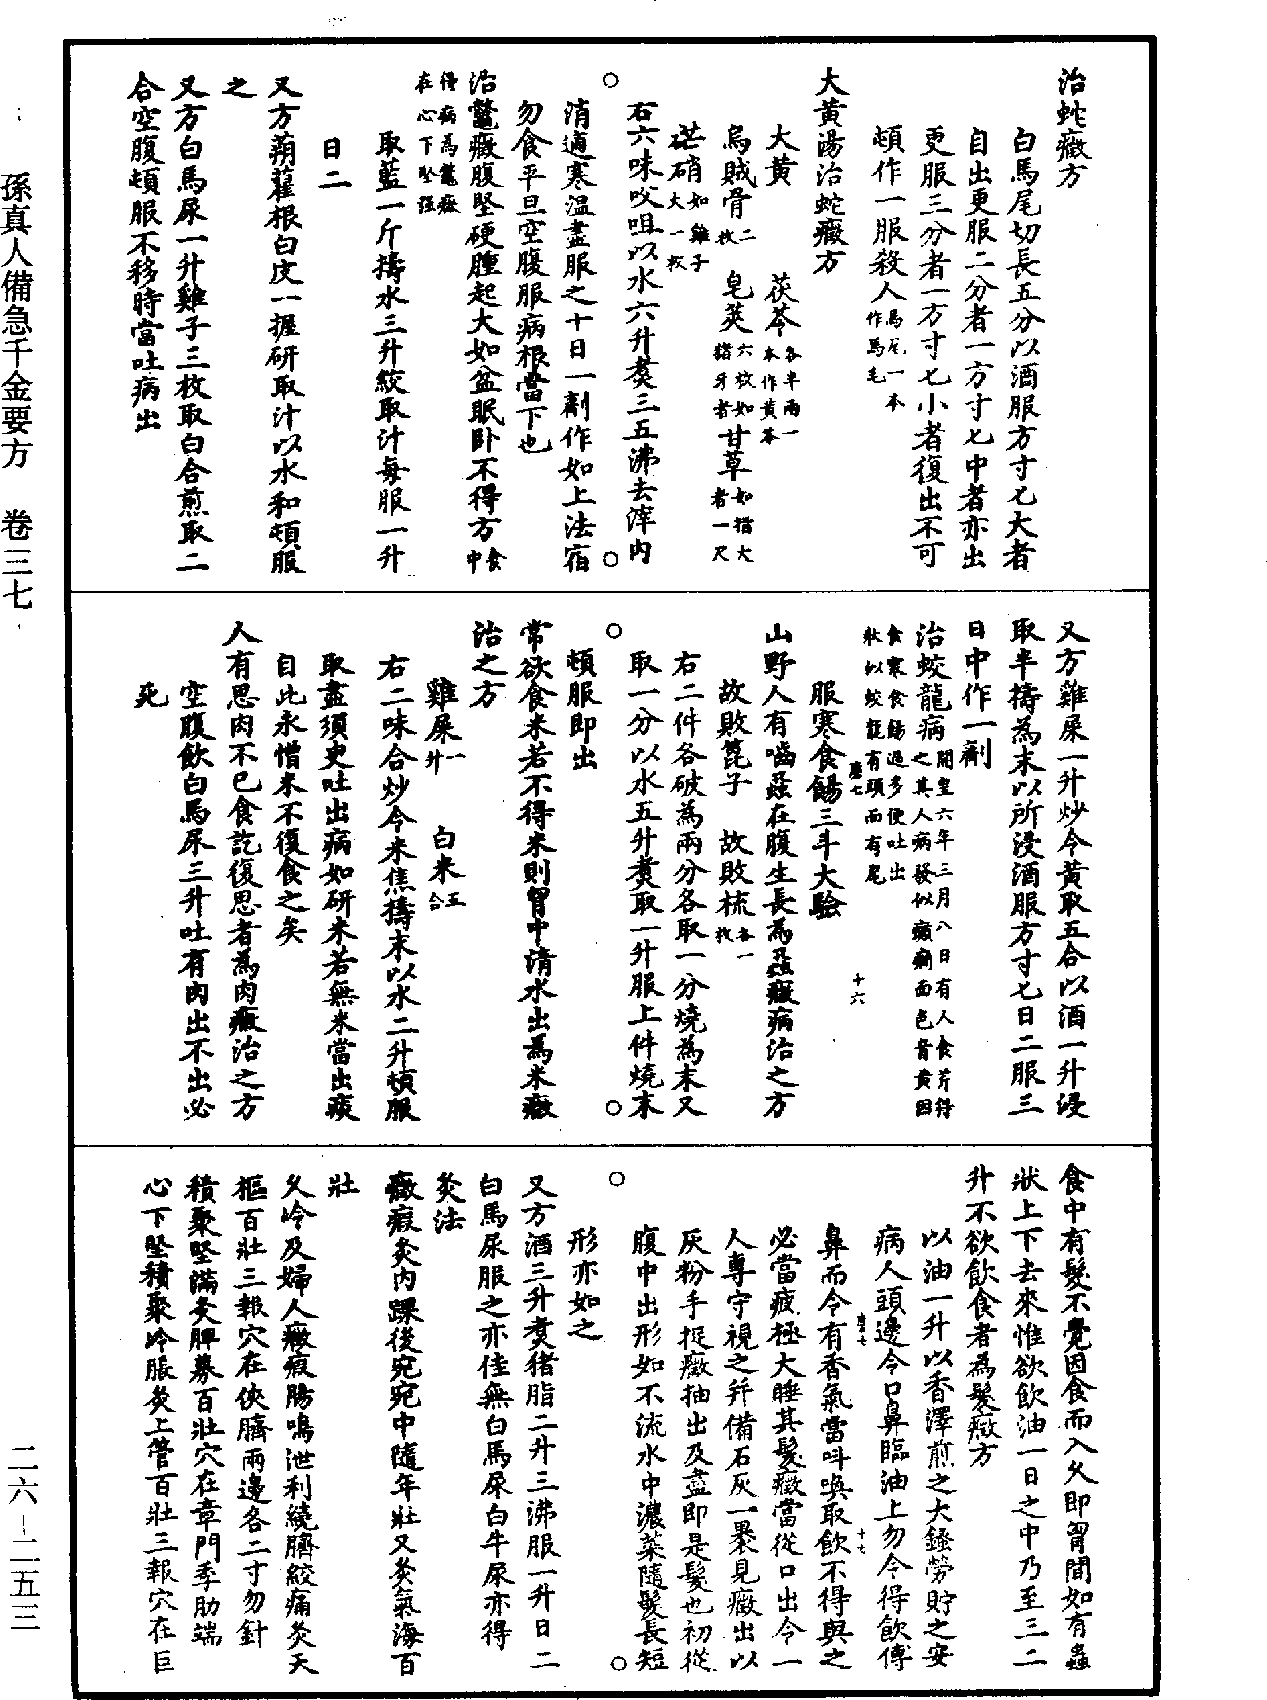 治蛇癥方
白馬尾切長五分以酒服方寸匕大者
自出更服二分者一方寸匕中者亦出
更服三分者一方寸匕小者復出不可
頓作一服殺人馬尾一本作馬毛
大黃湯治蛇癥方
大黃 茯苓各半兩一本作黃芩
烏賊骨二枚 皂莢六枚如猪牙者 甘草如指大者一尺
芒硝如雞子大一枚
右六味㕮咀以水六升煑三五沸去滓內
消適寒溫盡服之十日一劑作如上法宿
勿食平旦空腹服病根當下也
治鼈癥腹堅硬腫起大如盆眠卧不得方食中
得病為鼈癥在心下堅强
取藍一斤擣水三升絞取汁每服一升
日二
又方蒴藋根白皮一握研取汁以水和頓服
之
又方白馬尿一升雞子三枚取白合煎取二
合空腹頓服不移時當吐病出
又方雞屎一升炒令黃取五合以酒一升浸
取半擣為末以所浸酒服方寸匕日二服三
日中作一劑
治蛟龍病開皇六年三月八日有人食芹得之其人病發似癲癇面色青黃因
食寒食餳過多便吐出狀似蛟龍有頭而有尾
服寒食餳三斗大驗
山野人有嚙蝨在腹生長為蝨癥病治之方
故敗篦子 故敗梳各一枚
右二件各破為兩分各取一分燒為末又
取一分以水五升煑取一升服上件燒末
頓服即出
常欲食米若不得米則胷中清水出為米癥
治之方
雞屎一升 白米五合
右二味合炒令米焦擣末以水二升頓服
取盡須臾吐出病如研米若無米當出痰
自此永憎米不復食之矣
人有思肉不已食訖復思者為肉癥治之方
空腹飲白馬尿三升吐有肉出不出必
死
食中有髮不覺因食而入久即胷間如有蟲
狀上下去來惟欲飲油一日之中乃至三二
升不欲飲食者為髮癥方
以油一升以香澤煎之大鏓勞貯之安
病人頭邊令口鼻臨油上勿令得飲傅
鼻面令有香氣當呌喚取飲不得與之
必當疲極大睡其髮癥當從口出令一
人專守視之并備石灰一裹見癥出以
灰粉手捉癥抽出及盡即是髮也初從
腹中出形如不流水中濃菜隨髮長短
形亦如之
又方酒三升煑猪脂二升三沸服一升日二
白馬尿服之亦佳無白馬尿白牛尿亦得
灸法
癥瘕灸內踝後宛宛中隨年壯又灸氣海百
壯
久冷及婦人癥瘕腸鳴泄利繞臍絞痛灸天
樞百壯三報穴在俠臍兩邊各二寸勿針
積聚堅滿灸脾募百壯穴在章門季肋端
心下堅積聚冷脹灸上管百壯三報穴在巨
唐七
十六
唐七
十七
孫真人備急千金要方 卷三七
二六-二五三